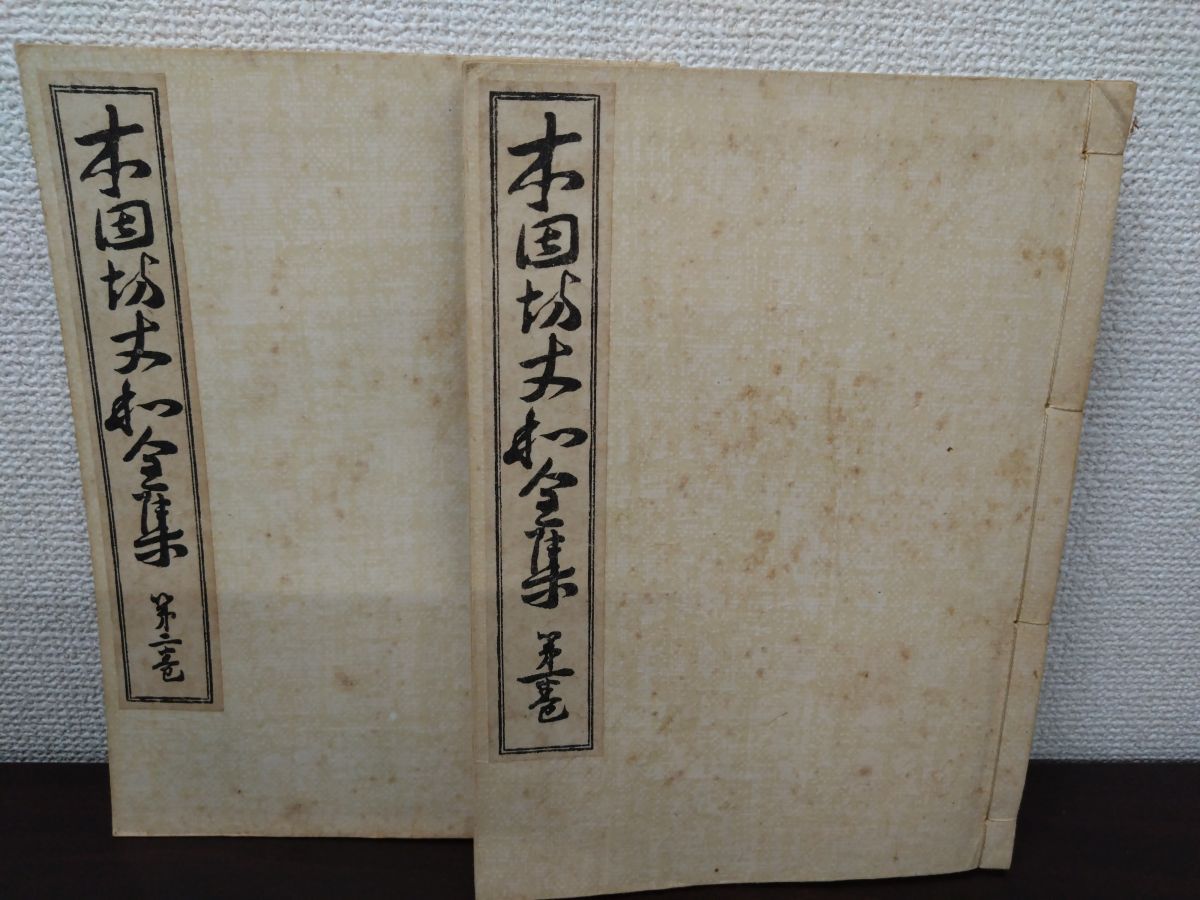 本因坊丈和全集 第一巻
本因坊丈和全集 第二巻